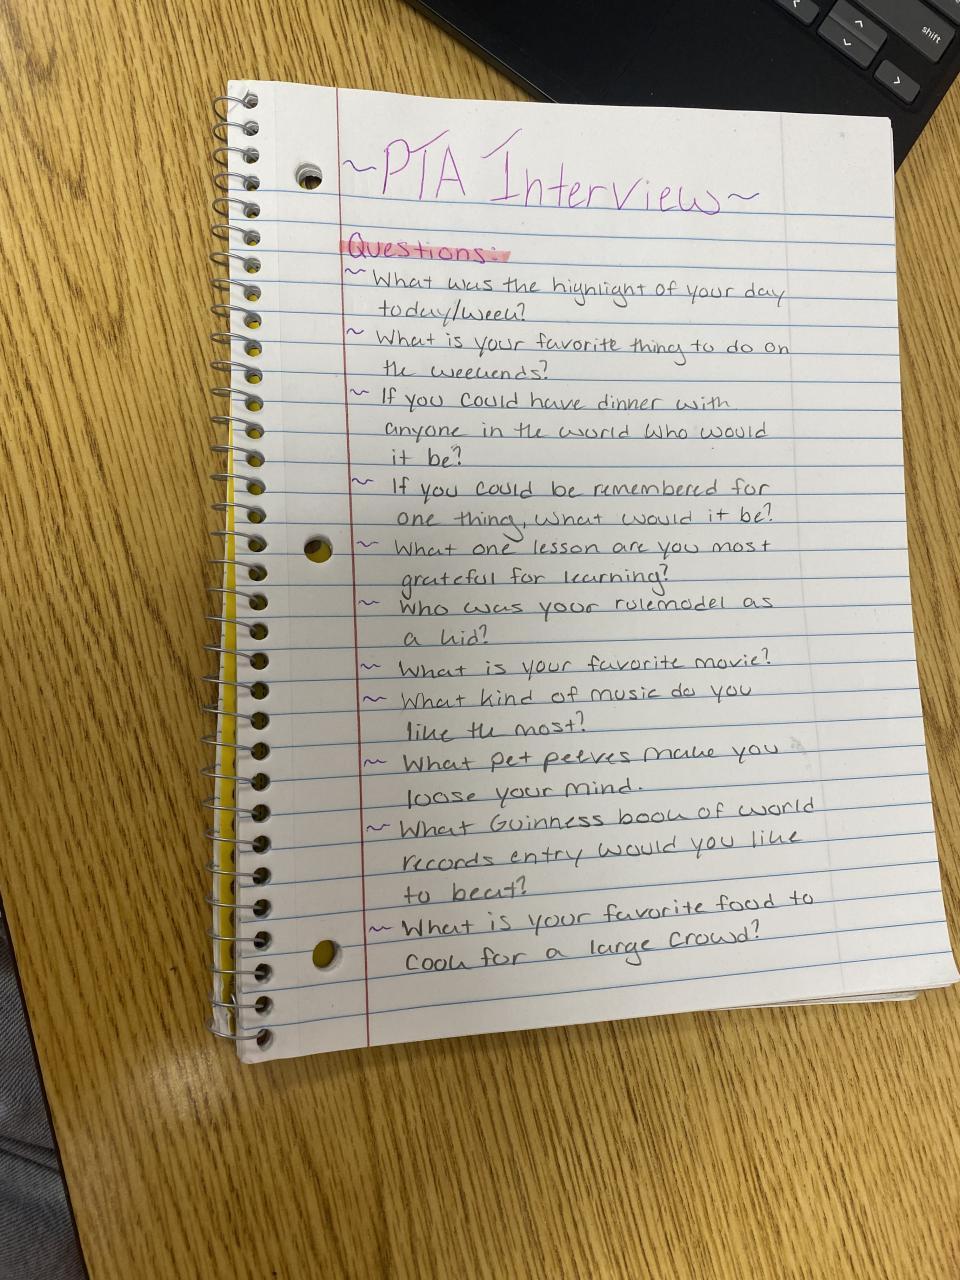 shift
~PTA Interview~
Questions:
~ What was the highlight of your day
today/week?
~ What is your favorite thing to do on
the weekends?
~ If you could have dinner with
anyone in the world who would
it be?
~ If you could be remembered for
one thing, what would it be?
~ What one lesson are you most
grateful for learning?
~ Who was your rolemodel as
a kid?
~ What is your favorite movie?
~ What kind of music do you
like the most?
~ What pet peeves make you
loose your mind.
~ What Guinness book of world
records entry would you like
to beat?
~ What is your favorite food to
cook for a large crowd?